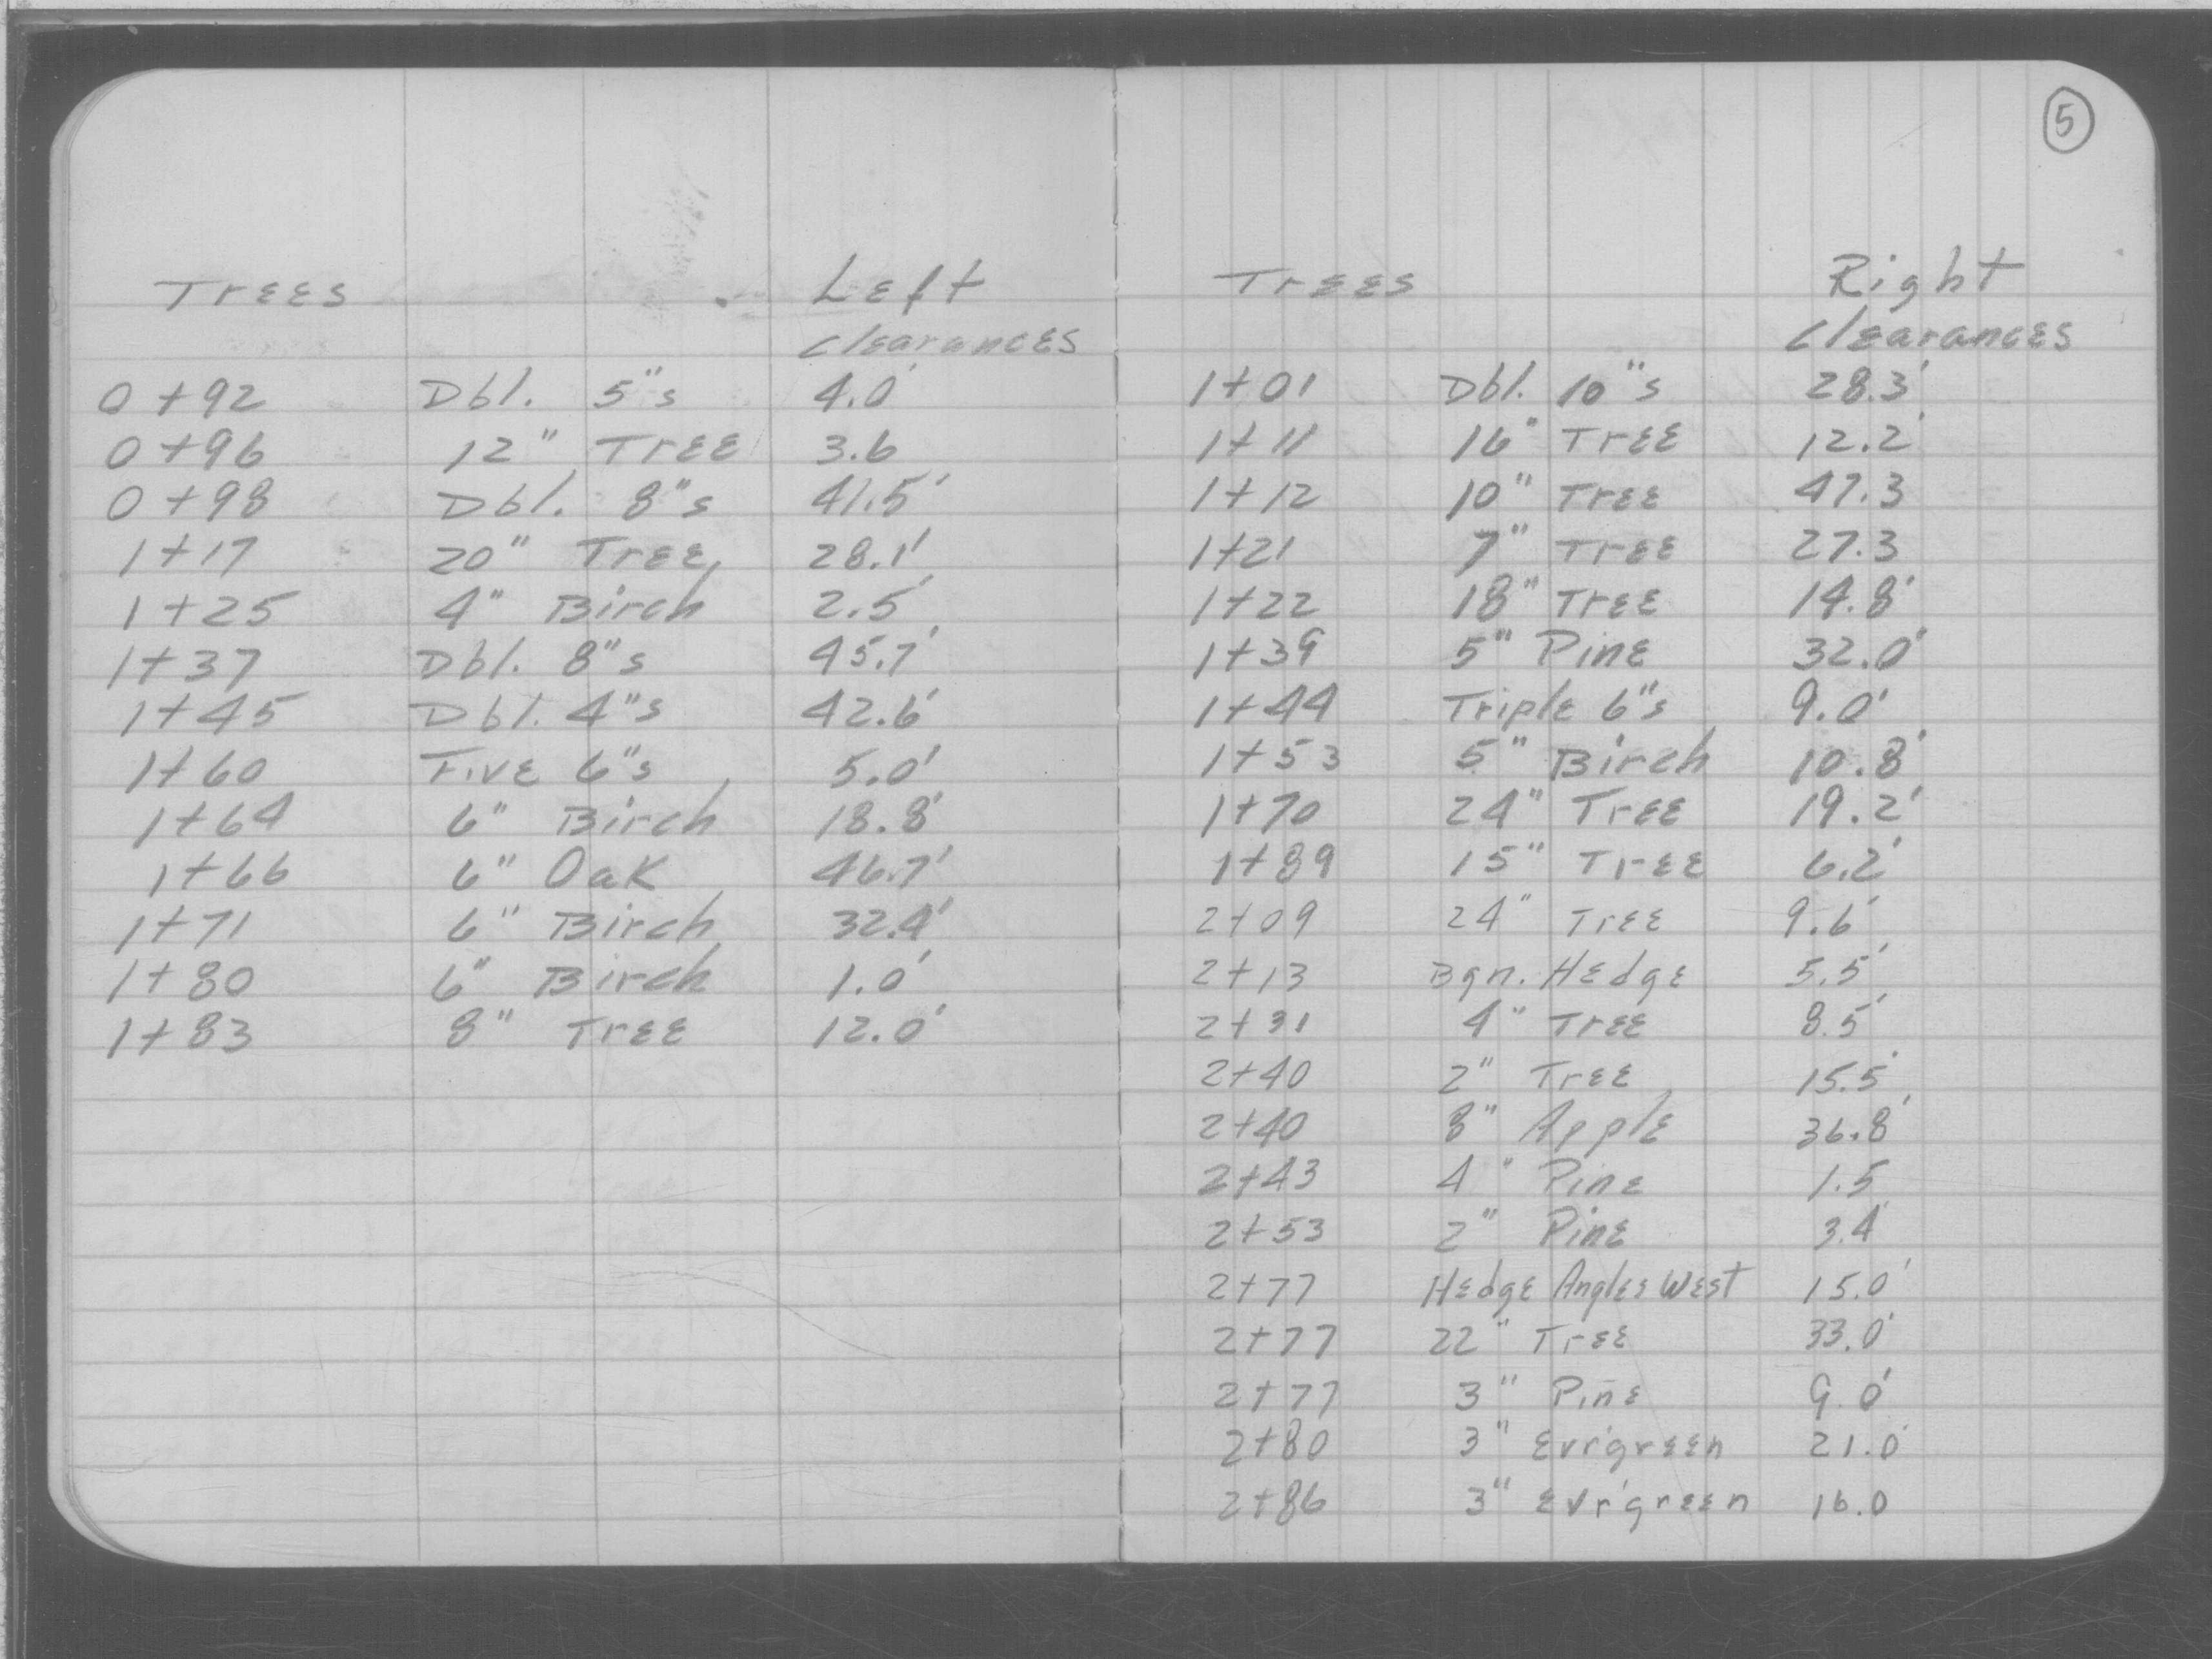 5
Trees Left
clearances
0+92 Dbl. 5"s 4.0'
0+96 12" Tree 3.6
0+98 Dbl. 8"s 41.5'
1+17 20" Tree 28.1'
1+25 4" Birch 2.5'
1+37 Dbl. 8"s 45.7'
1+45 Dbl. 4"s 42.6'
1+60 Five 6"s 5.0'
1+64 6" Birch 18.8'
1+66 6" Oak 46.7'
1+71 6" Birch 32.4'
1+80 6" Birch 1.0'
1+83 8" Tree 12.0'
Trees Right
clearances
1+01 Dbl. 10"s 28.3'
1+11 16" Tree 12.2'
1+12 10" Tree 47.3
1+21 7" Tree 27.3
1+22 18" Tree 14.8'
1+39 5" Pine 32.0'
1+44 Triple 6"s 9.0'
1+53 5" Birch 10.8'
1+70 24" Tree 19.2'
1+89 15" Tree 6.2'
2+09 24" Tree 9.6'
2+13 Bgn. Hedge 5.5'
2+31 4" Tree 8.5'
2+40 2" Tree 15.5'
2+40 8" Apple 36.8'
2+43 4" Pine 1.5
2+53 2" Pine 3.4'
2+77 Hedge Angles West 15.0'
2+77 22" Tree 33.0'
2+77 3" Pine 9.0'
2+80 3" Evr'green 21.0'
2+86 3" Evr'green 16.0